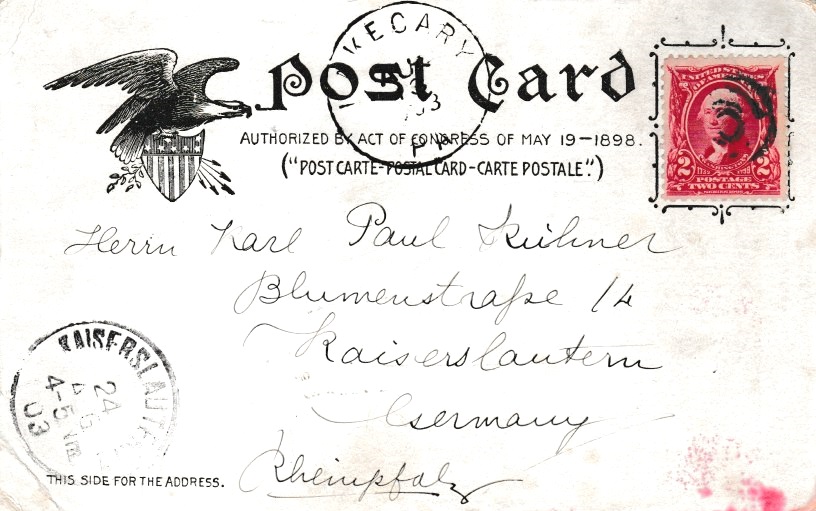 Post Card
AUTHORIZED BY ACT OF CONGRESS OF MAY 19-1898.
("POST CARTE-POSTAL CARD-CARTE POSTALE.")
KECARY
PA
03
UNITED STATES
OF AMERICA
WASHINGTON
2 2
POSTAGE
TWO CENTS
Herrn Karl Paul Kühner
Blumenstraße 14
Kaiserslautern
Germany
Rheinpfalz
KAISERSLAUTERN
24
4-5
03
THIS SIDE FOR THE ADDRESS.